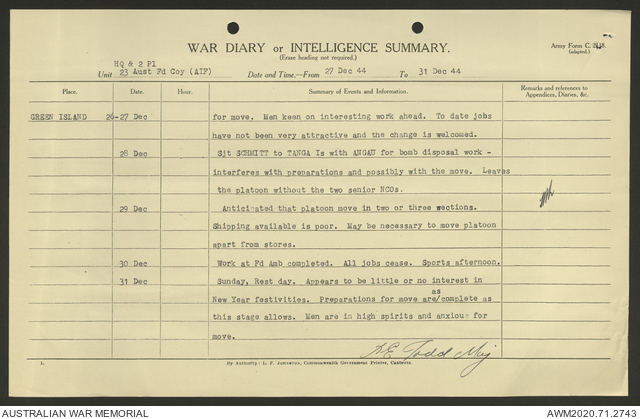 WAR DIARY or INTELLIGENCE SUMMARY.
(Erase heading not required.)
Army Form C. 2118.
(adapted.)
HQ & 2 Pl
Unit 23 Aust Fd Coy (AIF) Date and Time.—From 27 Dec 44 To 31 Dec 44
Place. Date. Hour. Summary of Events and Information. Remarks and references to Appendices, Diaries, &c.
GREEN ISLAND 26-27 Dec for move. Men keen on interesting work ahead. To date jobs
have not been very attractive and the change is welcomed.
28 Dec Sjt SCHMITT to TANGA Is with ANGAU for bomb disposal work -
interferes with preparations and possibly with the move. Leaves
the platoon without the two senior NCOs.
29 Dec Anticipated that platoon move in two or three wections.
Shipping available is poor. May be necessary to move platoon
apart from stores.
30 Dec Work at Fd Amb completed. All jobs cease. Sports afternoon.
31 Dec Sunday, Rest day. Appears to be little or no interest in
as
New Year festivities. Preparations for move are/complete as
this stage allows. Men are in high spirits and anxious for
move.
Todd Maj
1.
By Authority: L. F. Johnston, Commonwealth Government Printer, Canberra.
AUSTRALIAN WAR MEMORIAL
AWM2020.71.2743